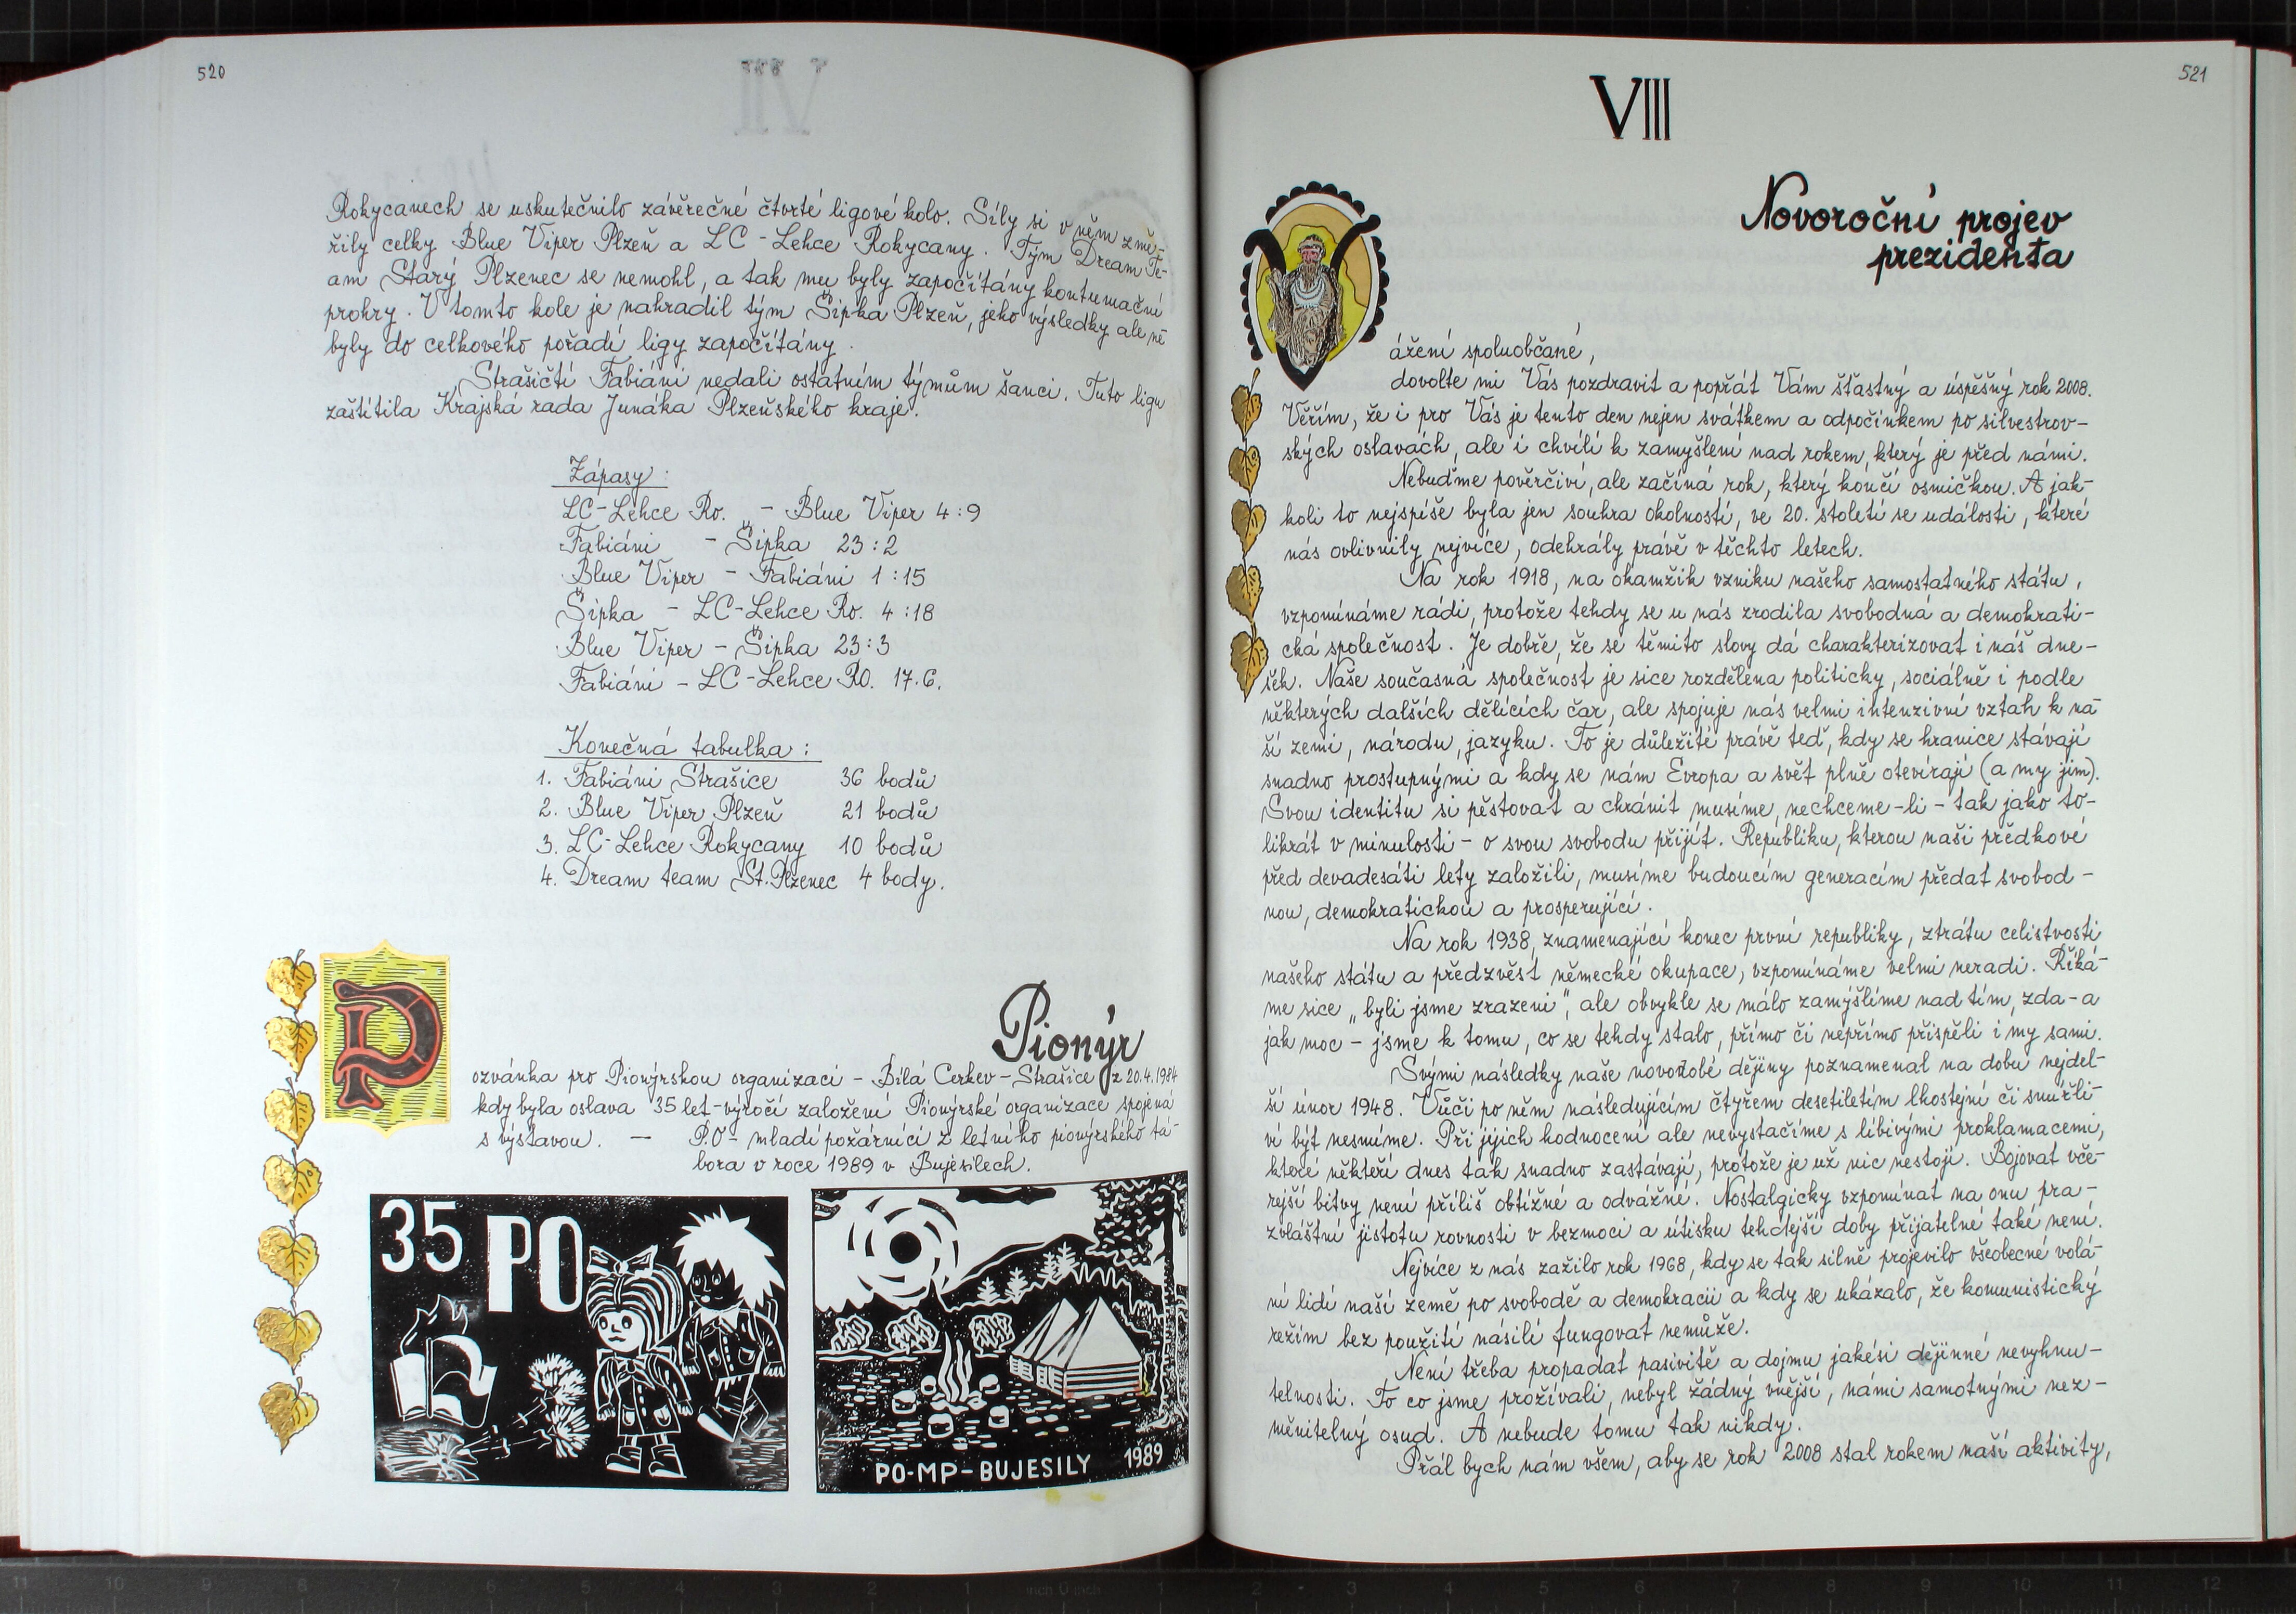 520
Rokycanech se uskutečnilo závěrečné čtvrté ligové kolo. Síly si v něm změ-
řily celky Blue Viper Plzeň a LC - Lehce Rokycany. Tým Dream Te-
am Starý Plzenec se nemohl, a tak mu byly započítány kontumační
prohry. V tomto kole je nahradil tým Šipka Plzeň, jeho výsledky ale ne
byly do celkového pořadí ligy započítány.
Strašičtí Fabiáni nedali ostatním týmům šanci. Tuto ligu
zaštítila Krajská rada Junáka Plzeňského kraje.
Zápasy:
LC-Lehce Ro. - Blue Viper 4:9
Fabiáni - Šipka 23:2
Blue Viper - Fabiáni 1:15
Šipka - LC-Lehce Ro. 4:18
Blue Viper - Šipka 23:3
Fabiáni - LC-Lehce RO. 17.6.
Konečná tabulka:
1. Fabiáni Strašice 36 bodů
2. Blue Viper Plzeň 21 bodů
3. LC-Lehce Rokycany 10 bodů
4. Dream team St.Plzenec 4 body.
Pionýr
Pozvánka pro Pionýrskou organizaci - Bílá Cerkev - Strašice z 20.4.1984
kdy byla oslava 35 let-výročí založení Pionýrské organizace spojená
s výstavou. — P.O - mladí požárníci z letního pionýrského tá-
bora v roce 1989 v Bujesilech.
35 PO
PO-MP-BUJESILY 1989
521
VIII
Novoroční projev
prezidenta
Vážení spoluobčané,
dovolte mi Vás pozdravit a popřát Vám šťastný a úspěšný rok 2008.
Věřím, že i pro Vás je tento den nejen svátkem a odpočinkem po silvestrov-
ských oslavách, ale i chvílí k zamyšlení nad rokem, který je před námi.
Nebuďme pověrčiví, ale začíná rok, který končí osmičkou. A jak-
koli to nejspíše byla jen souhra okolností, ve 20. století se události, které
nás ovlivnily nejvíce, odehrály právě v těchto letech.
Na rok 1918, na okamžik vzniku našeho samostatného státu,
vzpomínáme rádi, protože tehdy se u nás zrodila svobodná a demokrati-
cká společnost. Je dobře, že se těmito slovy dá charakterizovat i náš dne-
šek. Naše současná společnost je sice rozdělena politicky, sociálně i podle
některých dalších dělících čar, ale spojuje nás velmi intenzivní vztah k na-
ší zemi, národu, jazyku. To je důležité právě teď, kdy se hranice stávají
snadno prostupnými a kdy se nám Evropa a svět plně otevírají (a my jim).
Svou identitu si pěstovat a chránit musíme, nechceme-li - tak jako to-
likrát v minulosti - o svou svobodu přijít. Republiku, kterou naši předkové
před devadesáti lety založili, musíme budoucím generacím předat svobod-
nou, demokratickou a prosperující.
Na rok 1938, znamenající konec první republiky, ztrátu celistvosti
našeho státu a předzvěst německé okupace, vzpomínáme velmi neradi. Říká-
me sice „byli jsme zrazeni", ale obvykle se málo zamýšlíme nad tím, zda - a
jak moc - jsme k tomu, co se tehdy stalo, přímo či nepřímo přispěli i my sami.
Svými následky naše novodobé dějiny poznamenal na dobu nejdel-
ší únor 1948. Vůči po něm následujícím čtyřem desetiletím lhostejní či smířli-
ví být nesmíme. Při jejich hodnocení ale nevystačíme s líbivými proklamacemi,
které někteří dnes tak snadno zastávají, protože je už nic nestojí. Bojovat vče-
rejší bitvy není příliš obtížné a odvážné. Nostalgicky vzpomínat na onu pra-
zvláštní jistotu rovnosti v bezmoci a útisku tehdejší doby přijatelné také není.
Nejvíce z nás zažilo rok 1968, kdy se tak silně projevilo všeobecné volá-
ní lidí naší země po svobodě a demokracii a kdy se ukázalo, že komunistický
režim bez použití násilí fungovat nemůže.
Není třeba propadat pasivitě a dojmu jakési dějinné nevyhnu-
telnosti. To co jsme prožívali, nebyl žádný vnější, námi samotnými nez-
měnitelný osud. A nebude tomu tak nikdy.
Přál bych nám všem, aby se rok 2008 stal rokem naší aktivity,